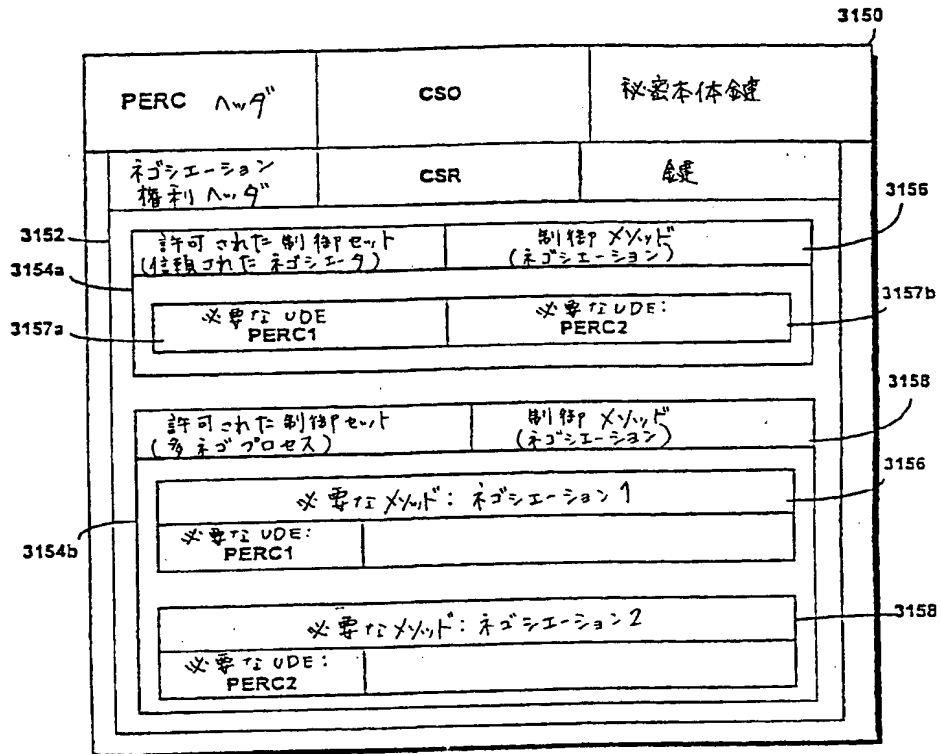 3150
PERC ヘッダ
CS0
秘密本体鍵
ネゴシエーション
権利ヘッダ
CSR
鍵
3156
3152
許可された制御セット
(信頼されたネゴシエータ)
制御メソッド
(ネゴシエーション)
3154a
3157b
3157a
必要なUDE
PERC1
必要なUDE:
PERC2
3158
許可された制御セット
(多ネゴプロセス)
制御メソッド
(ネゴシエーション)
3156
必要なメソッド: ネゴシエーション1
3154b
必要なUDE:
PERC1
3158
必要なメソッド: ネゴシエーション2
必要なUDE:
PERC2